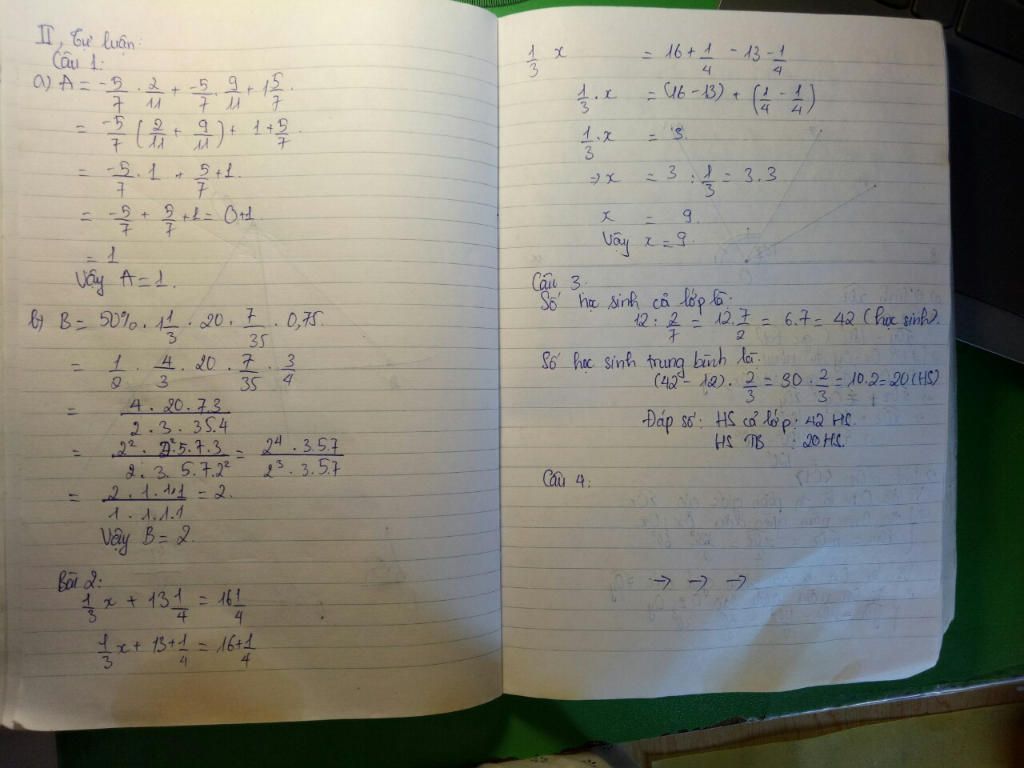 II, Tự luận:
Câu 1:
a) A = -5/7 . 2/11 + -5/7 . 9/11 + 1 5/7.
= -5/7 (2/11 + 9/11) + 1 + 5/7.
= -5/7 . 1 + 5/7 + 1.
= -5/7 + 5/7 + 1 = 0+1
= 1
Vậy A = 1.
b) B = 50% . 1 1/3 . 20 . 7/35 . 0,75.
= 1/2 . 4/3 . 20 . 7/35 . 3/4
= 4 . 20 . 7.3 / 2 . 3 . 35.4
= 2² . 2².5.7.3 / 2 . 3 . 5.7.2² = 2⁴ . 3.5.7 / 2³ . 3.5.7
= 2 . 1 . 1.1 / 1 . 1.1.1 = 2.
Vậy B = 2.
Bài 2:
1/3 x + 13 1/4 = 16 1/4
1/3 x + 13 + 1/4 = 16 + 1/4
1/3 x = 16 + 1/4 - 13 - 1/4
1/3 . x = (16 - 13) + (1/4 - 1/4)
1/3 . x = 3.
⇒ x = 3 : 1/3 = 3.3
x = 9.
Vậy x = 9.
Câu 3.
Số học sinh cả lớp là:
12 : 2/7 = 12.7/2 = 6.7 = 42 (học sinh).
Số học sinh trung bình là.
(42 - 12) . 2/3 = 30 . 2/3 = 10.2 = 20 (HS)
Đáp số: HS cả lớp: 42 HS.
HS TB : 20 HS.
Câu 4:
→ → →